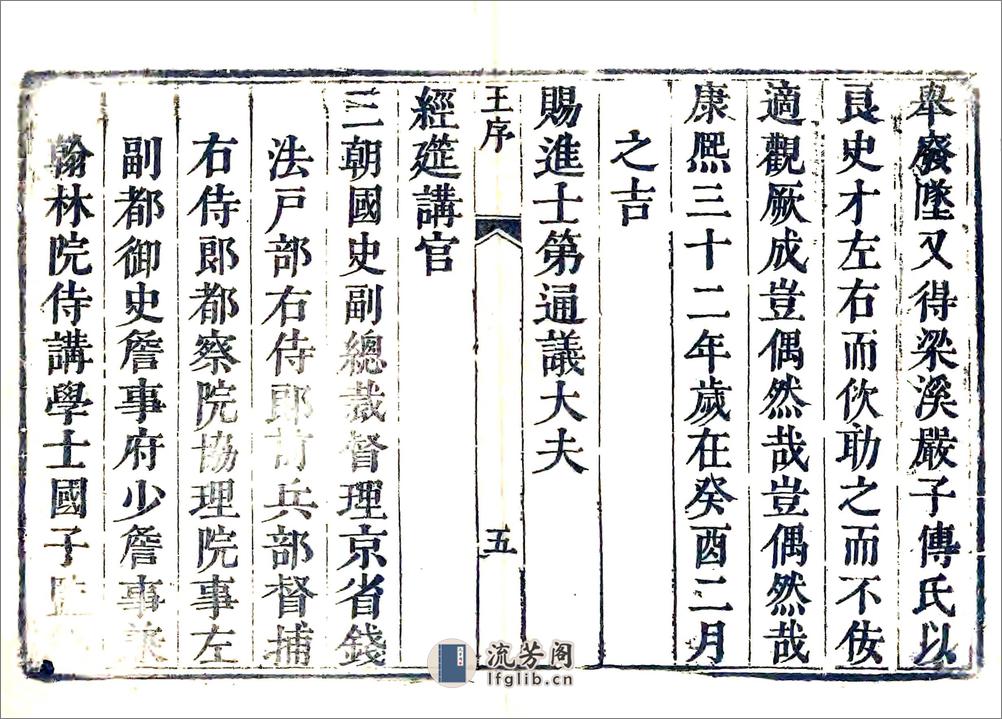 舉廢墜又得梁溪嚴子傳氏以
良史才左右而佽助之而不佞
適觀厥成豈偶然哉豈偶然哉
康熙三十二年歲在癸酉二月
之吉
賜進士第通議大夫
王序 五
經筵講官
三朝國史副總裁督理京省錢
法戶部右侍郎前兵部督捕
右侍郎都察院協理院事左
副都御史詹事府少詹事兼
翰林院侍講學士國子監
流芳阁
lfglib.cn